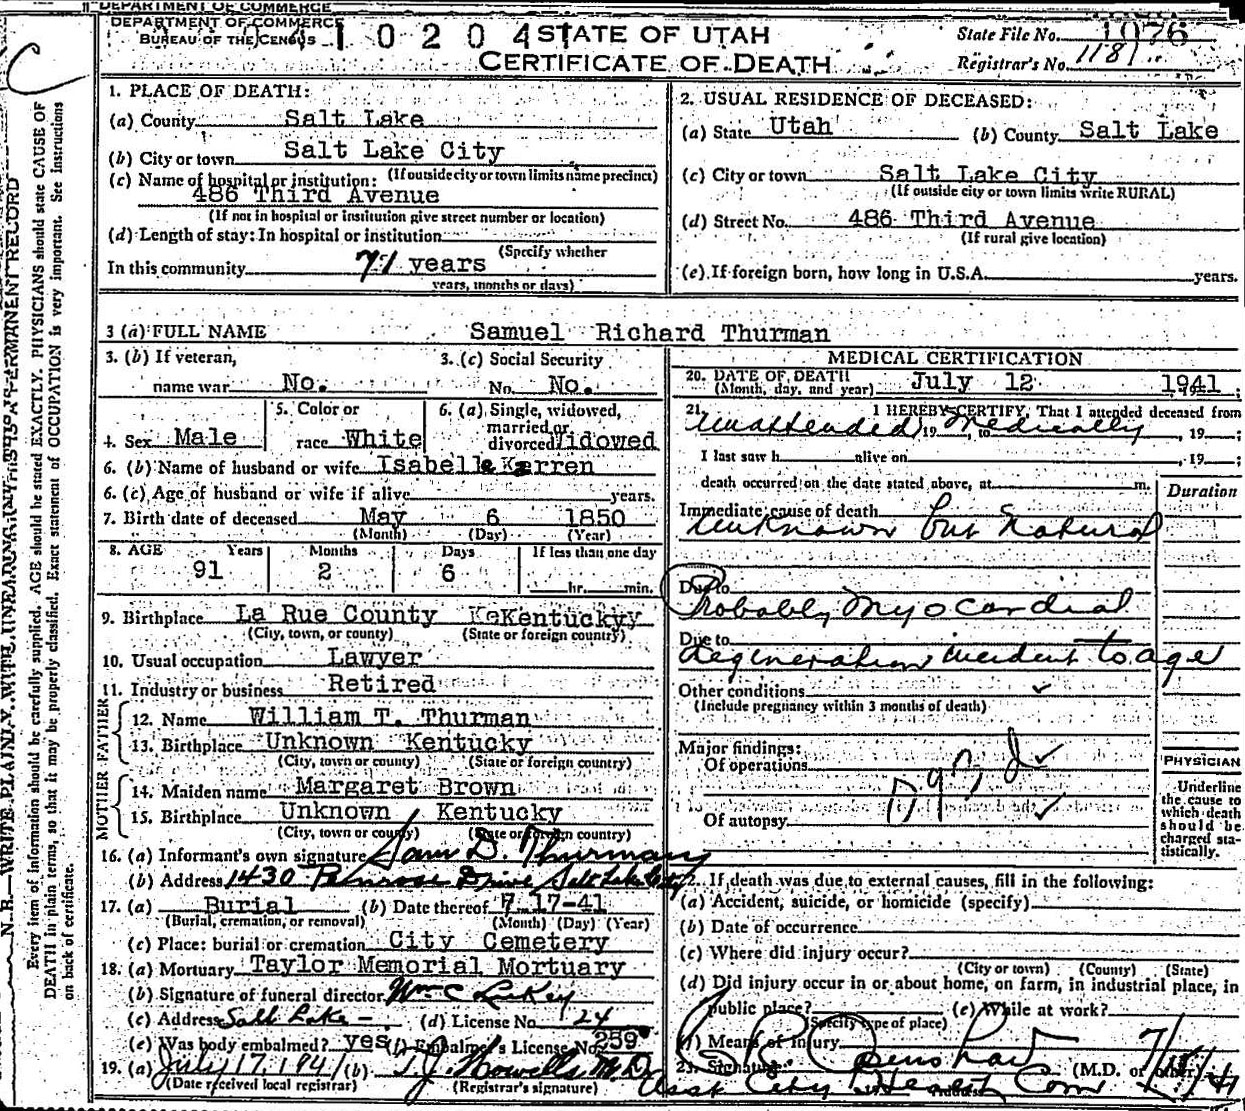 DEPARTMENT OF COMMERCE
DEPARTMENT OF COMMERCE
BUREAU OF THE CENSUS
1 0 2 0 4 1
STATE OF UTAH
CERTIFICATE OF DEATH
State File No. 1076
Registrar's No. 1181
C
N. B.—WRITE PLAINLY WITH UNFADING INK—THIS IS A PERMANENT RECORD
Every item of information should be carefully supplied. AGE should be stated EXACTLY. PHYSICIANS should state CAUSE OF
DEATH in plain terms, so that it may be properly classified. Exact statement of OCCUPATION is very important. See instructions
on back of certificate.
1. PLACE OF DEATH:
(a) County Salt Lake
(b) City or town Salt Lake City
(If outside city or town limits name precinct)
(c) Name of hospital or institution:
486 Third Avenue
(If not in hospital or institution give street number or location)
(d) Length of stay: In hospital or institution
(Specify whether
In this community 71 years
years, months or days)
2. USUAL RESIDENCE OF DECEASED:
(a) State Utah (b) County Salt Lake
(c) City or town Salt Lake City
(If outside city or town limits write RURAL)
(d) Street No. 486 Third Avenue
(If rural give location)
(e) If foreign born, how long in U.S.A. years.
3 (a) FULL NAME Samuel Richard Thurman
3. (b) If veteran, 3. (c) Social Security
name war No. No. No.
4. Sex Male
5. Color or
race White
6. (a) Single, widowed,
married or
divorced Widowed
6. (b) Name of husband or wife Isabelle Karren
6. (c) Age of husband or wife if alive years.
7. Birth date of deceased May 6 1850
(Month) (Day) (Year)
8. AGE Years Months Days If less than one day
91 2 6 hr. min.
9. Birthplace La Rue County KeKentuckyy
(City, town, or county) (State or foreign country)
10. Usual occupation Lawyer
11. Industry or business Retired
FATHER
12. Name William T. Thurman
13. Birthplace Unknown Kentucky
(City, town or county) (State or foreign country)
MOTHER
14. Maiden name Margaret Brown
15. Birthplace Unknown Kentucky
(City, town or county) (State or foreign country)
16. (a) Informant's own signature Sam D. Thurman
(b) Address 1430 Penrose Drive Salt Lake City
17. (a) Burial (b) Date thereof 7-17-41
(Burial, cremation, or removal) (Month) (Day) (Year)
(c) Place: burial or cremation City Cemetery
18. (a) Mortuary Taylor Memorial Mortuary
(b) Signature of funeral director Wm C
(c) Address Salt Lake - (d) License No. 24
(e) Was body embalmed? yes (f) Embalmer's License No. 259
19. (a) July 17, 1941 (b) T.J. Howells M.D.
(Date received local registrar) (Registrar's signature)
MEDICAL CERTIFICATION
20. DATE OF DEATH
(Month, day, and year) July 12 1941;
21. I HEREBY CERTIFY, That I attended deceased from
Unattended, 19 , to Medically, 19 ;
I last saw h alive on , 19 ;
death occurred on the date stated above, at m.
Duration
Immediate cause of death
Unknown but Natural
Due to
Probably Myocardial
Due to
degeneration incident to age
Other conditions
(Include pregnancy within 3 months of death)
Major findings:
Of operations
Of autopsy
PHYSICIAN
Underline
the cause to
which death
should be
charged sta-
tistically.
22. If death was due to external causes, fill in the following:
(a) Accident, suicide, or homicide (specify)
(b) Date of occurrence
(c) Where did injury occur?
(City or town) (County) (State)
(d) Did injury occur in or about home, on farm, in industrial place, in
public place? (e) While at work?
(Specify type of place)
(f) Means of injury
23. Signature (M.D. or other)
Asst City Health Com
Address